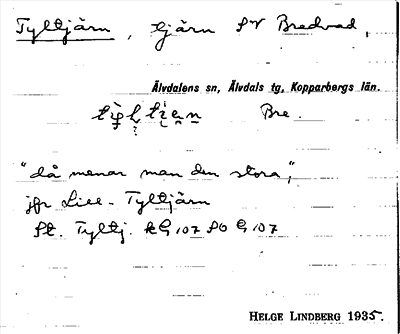 Tyltjärn, tjärn SV Bredvad,
Älvdalens sn, Älvdals tg, Kopparbergs län.
Bre.
"då menar man den stora",
jfr Lill-Tyltjärn
St. Tyltj. kG 107 SO G 107
HELGE LINDBERG 1935.